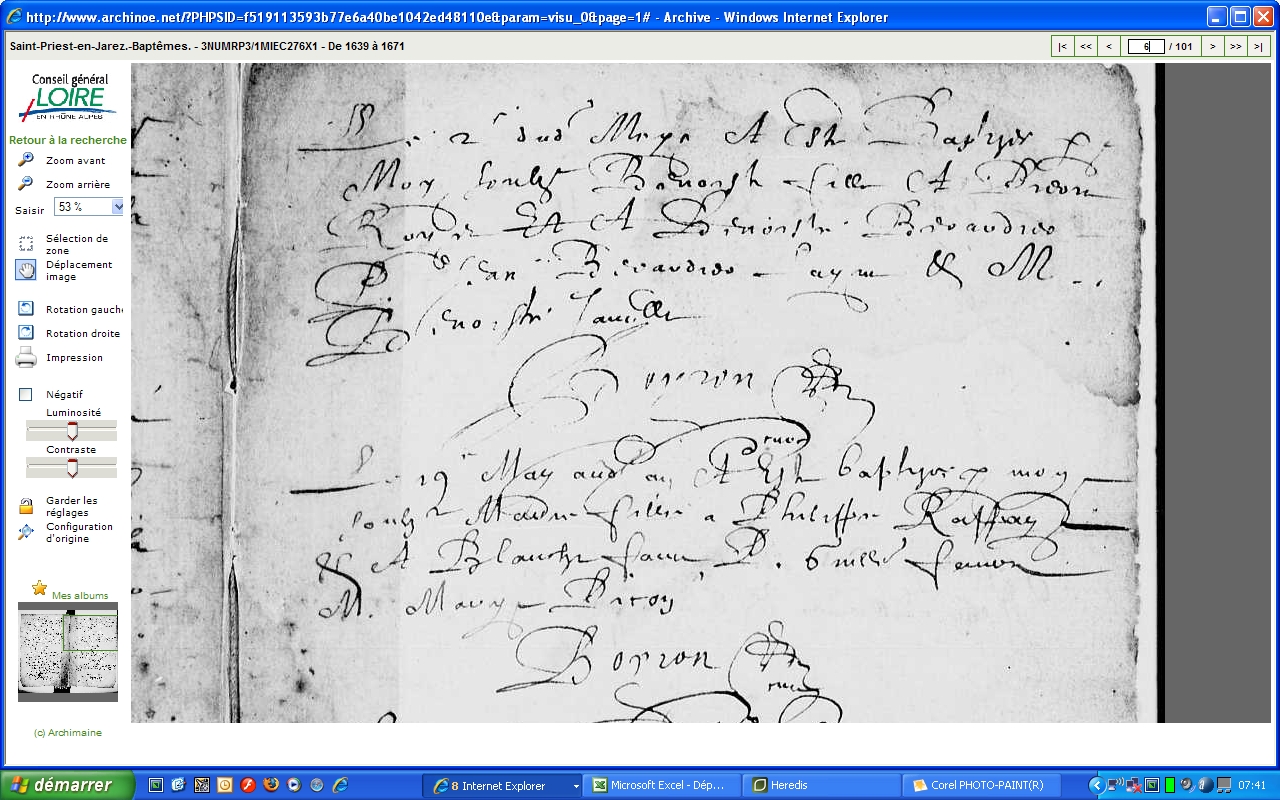 http://www.archinoe.net/?PHPSID=f519113593b77e6a40be1042ed48110e&param=visu_0&page=1# - Archive - Windows Internet Explorer
Saint-Priest-en-Jarez.-Baptêmes. - 3NUMRP3/1MIEC276X1 - De 1639 à 1671
|< << < 6 / 101 > >> >|
Conseil général
LOIRE
EN RHÔNE ALPES
Retour à la recherche
Zoom avant
Zoom arrière
Saisir 53 %
Sélection de
zone
Déplacement
image
Rotation gauch
Rotation droite
Impression
Négatif
Luminosité
Contraste
Garder les
réglages
Configuration
d'origine
Mes albums
(c) Archimaine
Le 2 dud Moys A Est Baptyse p
Moy soubz Benoiste fille A
Royer Et A Benoiste Berardier
P. Jean Berardier & M
Benoiste
Boyron
Le 19 May aud an A Est baptyse p moy
soubz fille a Philippe Raffay
& A Blanche P.
M. Marye
Boyron
démarrer
8 Internet Explorer
Microsoft Excel - Dép...
Heredis
Corel PHOTO-PAINT(R)
07:41